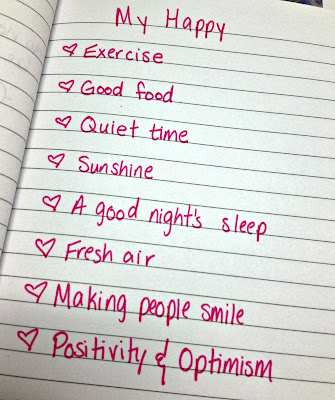 My Happy
♡ Exercise
♡ Good food
♡ Quiet time
♡ Sunshine
♡ A good night's sleep
♡ Fresh air
♡ Making people smile
♡ Positivity & Optimism